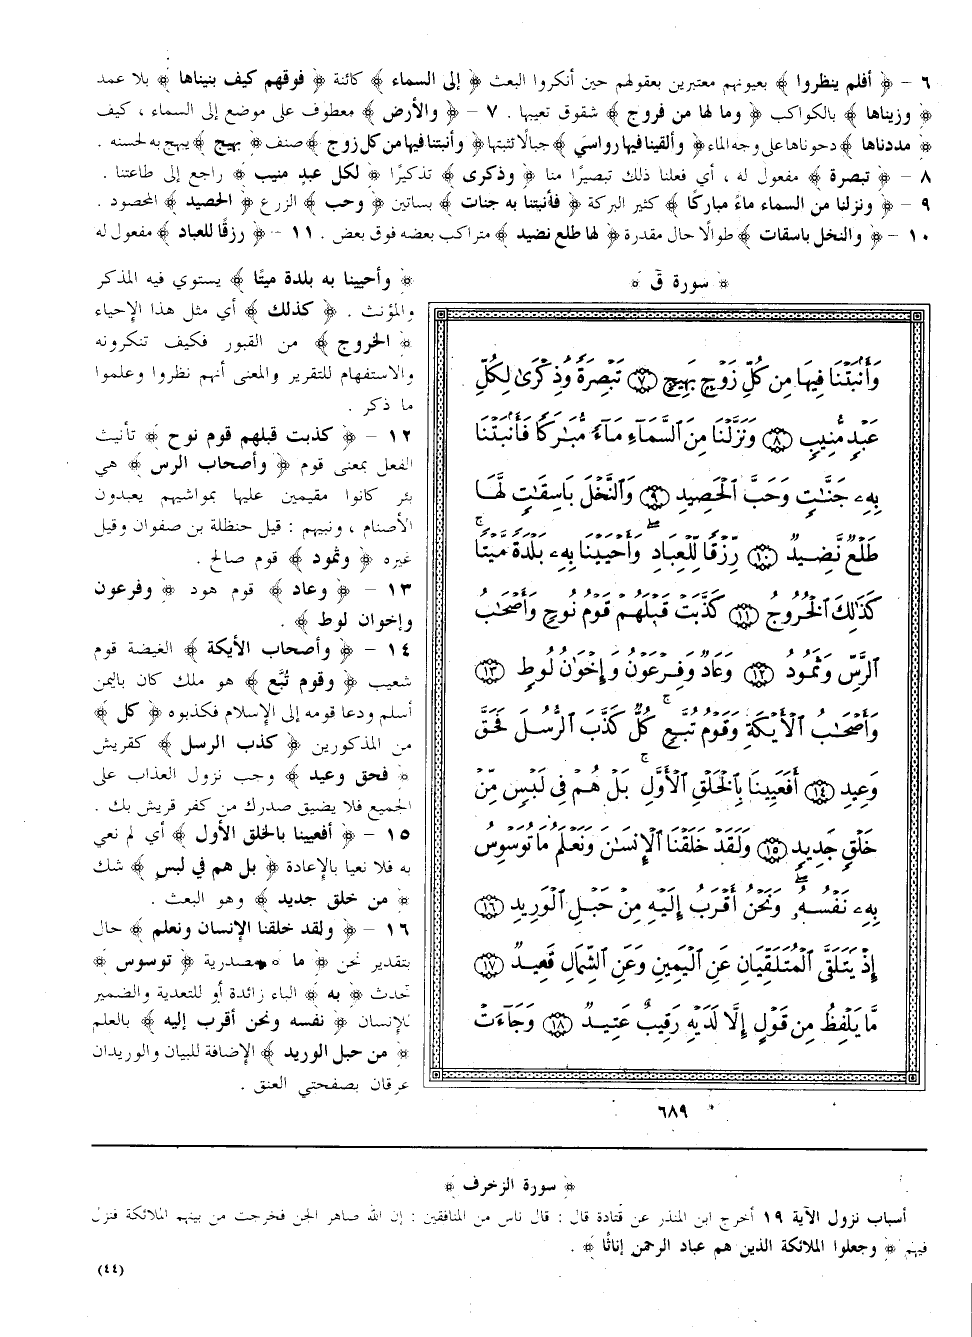 ٦ - ﴿ أفلم ينظروا ﴾ بعيونهم معتبرين بعقولهم حين أنكروا البعث ﴿ إلى السماء ﴾ كائنة ﴿ فوقهم كيف بنيناها ﴾ بلا عمد
﴿ وزيناها ﴾ بالكواكب ﴿ وما لها من فروج ﴾ شقوق تعيبها . ٧ - ﴿ والأرض ﴾ معطوف على موضع إلى السماء ، كيف
﴿ مددناها ﴾ دحوناها على وجه الماء ﴿ وألقينا فيها رواسي ﴾ جبالًا تثبتها ﴿ وأنبتنا فيها من كل زوج ﴾ صنف ﴿ بهيج ﴾ يبهج به لحسنه .
٨ - ﴿ تبصرة ﴾ مفعول له ، أي فعلنا ذلك تبصيرًا منا ﴿ وذكرى ﴾ تذكيرًا ﴿ لكل عبدٍ منيب ﴾ راجع إلى طاعتنا .
٩ - ﴿ ونزلنا من السماء ماءً مباركًا ﴾ كثير البركة ﴿ فأنبتنا به جنات ﴾ بساتين ﴿ وحب ﴾ الزرع ﴿ الحصيد ﴾ المحصود .
١٠ - ﴿ والنخل باسقات ﴾ طوالًا حال مقدرة ﴿ لها طلع نضيد ﴾ متراكب بعضه فوق بعض . ١١ - ﴿ رزقًا للعباد ﴾ مفعول له
﴿ وأحيينا به بلدة ميتًا ﴾ يستوي فيه المذكر
والمؤنث . ﴿ كذلك ﴾ أي مثل هذا الإحياء
﴿ الخروج ﴾ من القبور فكيف تنكرونه
والاستفهام للتقرير والمعنى أنهم نظروا وعلموا
ما ذكر .
١٢ - ﴿ كذبت قبلهم قوم نوح ﴾ تأنيث
الفعل بمعنى قوم ﴿ وأصحاب الرس ﴾ هي
بئر كانوا مقيمين عليها بمواشيهم يعبدون
الأصنام ، ونبيهم : قيل حنظلة بن صفوان وقيل
غيره ﴿ وثمود ﴾ قوم صالح .
١٣ - ﴿ وعاد ﴾ قوم هود ﴿ وفرعون
وإخوان لوط ﴾ .
١٤ - ﴿ وأصحاب الأيكة ﴾ الغيضة قوم
شعيب ﴿ وقوم تُبَّع ﴾ هو ملك كان باليمن
أسلم ودعا قومه إلى الإسلام فكذبوه ﴿ كل ﴾
من المذكورين ﴿ كذب الرسل ﴾ كقريش
﴿ فحق وعيد ﴾ وجب نزول العذاب على
الجميع فلا يضيق صدرك من كفر قريش بك .
١٥ - ﴿ أفعيينا بالخلق الأول ﴾ أي لم نعي
به فلا نعيا بالإعادة ﴿ بل هم في لبس ﴾ شك
﴿ من خلق جديد ﴾ وهو البعث .
١٦ - ﴿ ولقد خلقنا الإنسان ونعلم ﴾ حال
بتقدير نحن ﴿ ما ﴾ مصدرية ﴿ توسوس ﴾
تحدث ﴿ به ﴾ الباء زائدة أو للتعدية والضمير
للإنسان ﴿ نفسه ونحن أقرب إليه ﴾ بالعلم
﴿ من حبل الوريد ﴾ الإضافة للبيان والوريدان
عرقان بصفحتي العنق .
﴿ سورة قٓ ﴾
وَأَنۢبَتْنَا فِيهَا مِن كُلِّ زَوْجٍۭ بَهِيجٍ ﴿٧﴾ تَبْصِرَةً وَذِكْرَىٰ لِكُلِّ
عَبْدٍ مُّنِيبٍ ﴿٨﴾ وَنَزَّلْنَا مِنَ ٱلسَّمَآءِ مَآءً مُّبَٰرَكًا فَأَنۢبَتْنَا
بِهِۦ جَنَّٰتٍ وَحَبَّ ٱلْحَصِيدِ ﴿٩﴾ وَٱلنَّخْلَ بَاسِقَٰتٍ لَّهَا
طَلْعٌ نَّضِيدٌ ﴿١٠﴾ رِّزْقًا لِّلْعِبَادِ ۖ وَأَحْيَيْنَا بِهِۦ بَلْدَةً مَّيْتًا ۚ
كَذَٰلِكَ ٱلْخُرُوجُ ﴿١١﴾ كَذَّبَتْ قَبْلَهُمْ قَوْمُ نُوحٍ وَأَصْحَٰبُ
ٱلرَّسِّ وَثَمُودُ ﴿١٢﴾ وَعَادٌ وَفِرْعَوْنُ وَإِخْوَٰنُ لُوطٍ ﴿١٣﴾
وَأَصْحَٰبُ ٱلْأَيْكَةِ وَقَوْمُ تُبَّعٍ ۚ كُلٌّ كَذَّبَ ٱلرُّسُلَ فَحَقَّ
وَعِيدِ ﴿١٤﴾ أَفَعَيِينَا بِٱلْخَلْقِ ٱلْأَوَّلِ ۚ بَلْ هُمْ فِى لَبْسٍ مِّنْ
خَلْقٍ جَدِيدٍ ﴿١٥﴾ وَلَقَدْ خَلَقْنَا ٱلْإِنسَٰنَ وَنَعْلَمُ مَا تُوَسْوِسُ
بِهِۦ نَفْسُهُۥ ۖ وَنَحْنُ أَقْرَبُ إِلَيْهِ مِنْ حَبْلِ ٱلْوَرِيدِ ﴿١٦﴾
إِذْ يَتَلَقَّى ٱلْمُتَلَقِّيَانِ عَنِ ٱلْيَمِينِ وَعَنِ ٱلشِّمَالِ قَعِيدٌ ﴿١٧﴾
مَّا يَلْفِظُ مِن قَوْلٍ إِلَّا لَدَيْهِ رَقِيبٌ عَتِيدٌ ﴿١٨﴾ وَجَآءَتْ
٦٨٩
﴿ سورة الزخرف ﴾
أسباب نزول الآية ١٩ أخرج ابن المنذر عن قتادة قال : قال ناس من المنافقين : إن الله صاهر الجن فخرجت من بينهم الملائكة فنزل
فيهم ﴿ وجعلوا الملائكة الذين هم عباد الرحمن إناثًا ﴾ .
(٤٤)